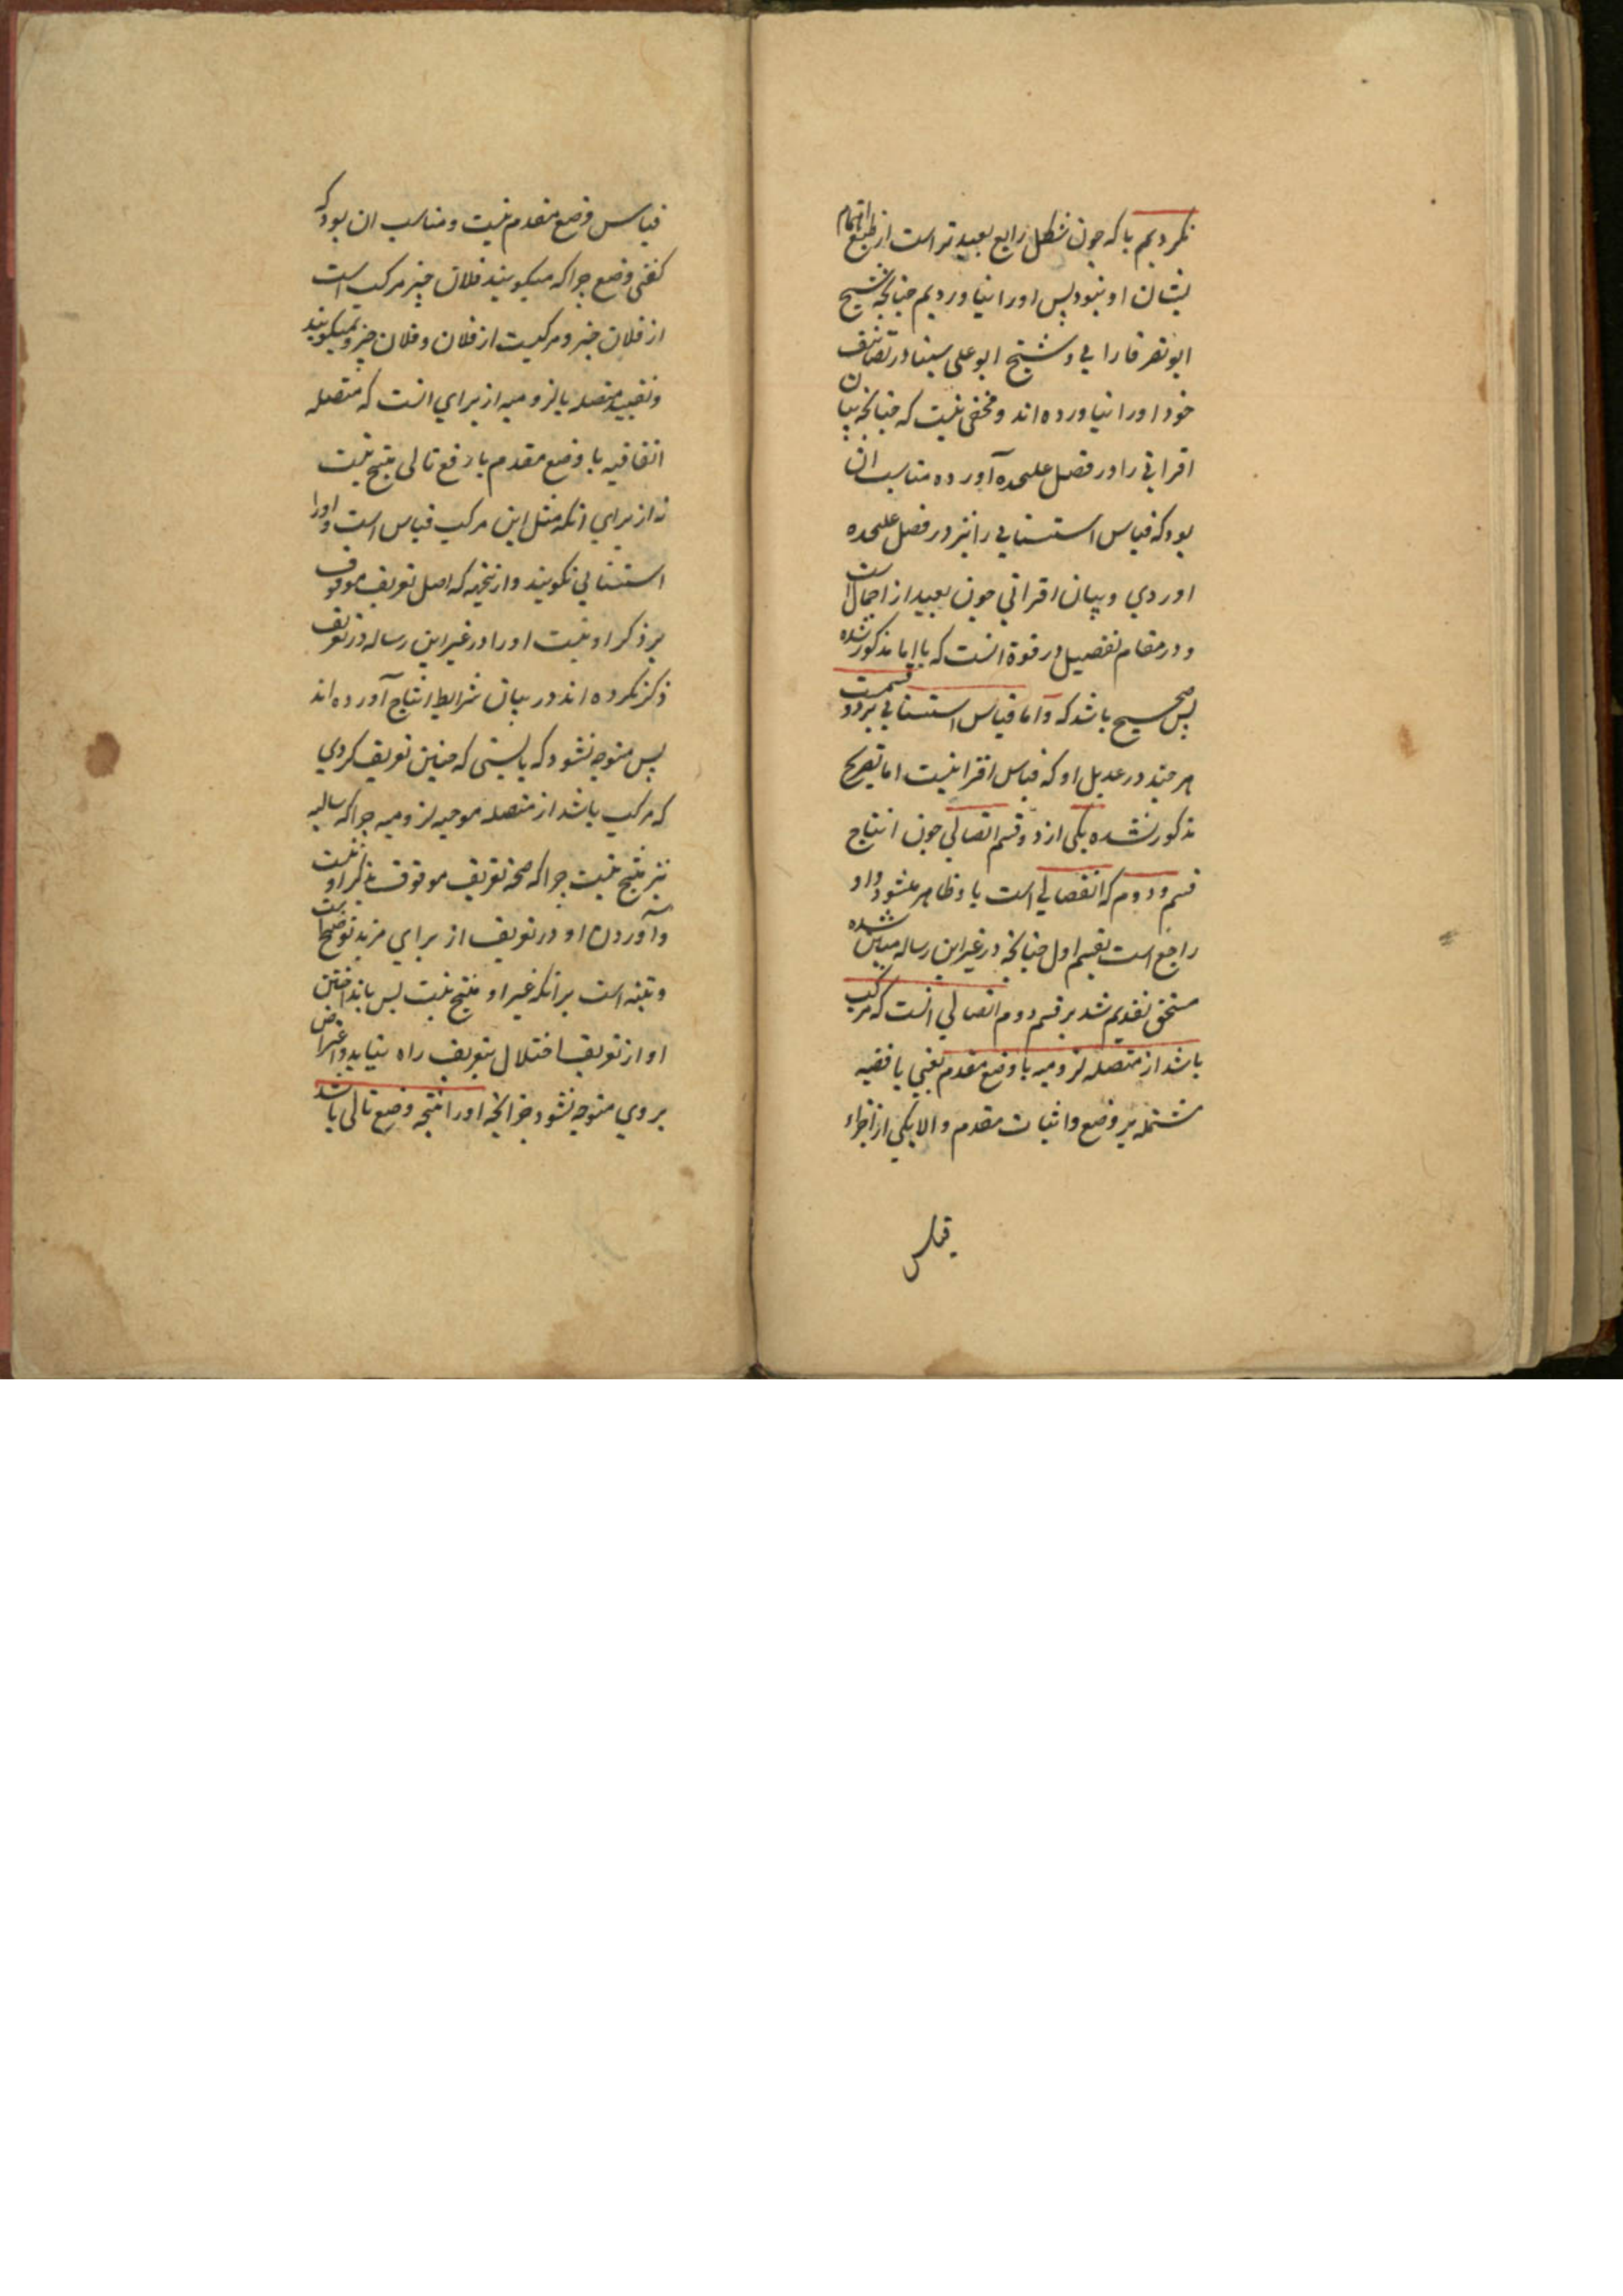 نکردیم با که چون شکل رابع بعیدتر است از طبع اتمام
بشان او نبود پس اورا نیاوردیم چنانچه شیخ
ابونصر فارابی و شیخ ابوعلی سینا در تصانیف
خود اورا نیاورده‌اند و مخفی نیست که چنانچه بیان
اقرانی را در فصل علیحده آورده مناسب ان
بود که قیاس استثنایی را نیز در فصل علیحده
اوردی و بیان اقرانی چون بعید از اجمال است
و در مقام تفصیل در قوة انست که با اما مذکور شده
پس صحیح باشد که و اما قیاس استثنایی بر دو قسمت
هر چند در عدیل او که قیاس اقرانیست اما بصریح
مذکور نشده یکی از دو قسم اتصالی چون انتاج
قسم دوم که انفصالی است با و ظاهر میشود و او
راجع است بقسم اول چنانچه در غیر این رساله مبین شده
مستحق تقدیم شد بر قسم دوم اتصالی انست که مرکب
باشد از متصله لزومیه با وضع مقدم یعنی با قضیه
مشتمله بر وضع و اثبات مقدم والا یکی از اجزاء
قیاس
قیاس وضع مقدم نیست و مناسب ان بود که
کفتی وضع چرا که میکویند فلان چیز مرکب است
از فلان چیز و مرکبست از فلان و فلان چیز و نمیکویند
و تقیید متصله بالزومیه از برای انست که متصله
اتفاقیه با وضع مقدم یا رفع تالی منتج نیست
نه از برای انکه مثل این مرکب قیاس است و اورا
استثنایی نکویند و ازینجهه که اصل تعریف موقوف
بر ذکر او نیست اورا در غیر این رساله در تعریف
ذکر نکرده‌اند در بیان شرایط انتاج آورده‌اند
پس متوجه نشود که بایستی که چنین تعریف کردی
که مرکب باشد از متصله موجبه لزومیه چرا که سالبه
نیز منتج نیست چرا که صحة تعریف موقوف بذکر او نیست
و آوردن او در تعریف از برای مزید توضیح است
و تنبیه است برانکه غیر او منتج نیست پس بانداختن
او از تعریف اختلال بتعریف راه نیابد و اعتراض
بروی متوجه نشود جزانکه اورا نتیجه وضع تالی باشد